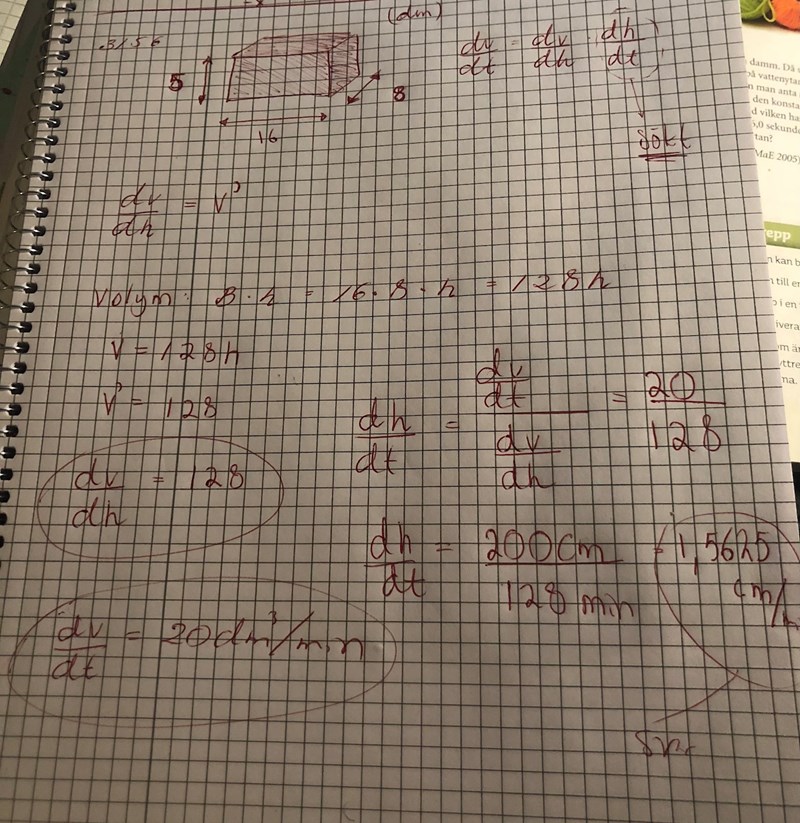 (dm)
3156
5
8
16
dv/dt = dv/dh · dh/dt
Sökt
dv/dh = V'
Volym: B·h = 16·8·h = 128h
V = 128h
V' = 128
dv/dh = 128
dh/dt = dv/dt / dv/dh = 20/128
dh/dt = 200cm / 128 min = 1,5625
cm/m
dv/dt = 20dm³/min
damm. Då
på vattenytan
n man anta
den konsta
d vilken ha
5,0 sekunde
tan?
MaE 2005)
epp
n kan b
till er
o i en
ivera
m är
yttre
na.